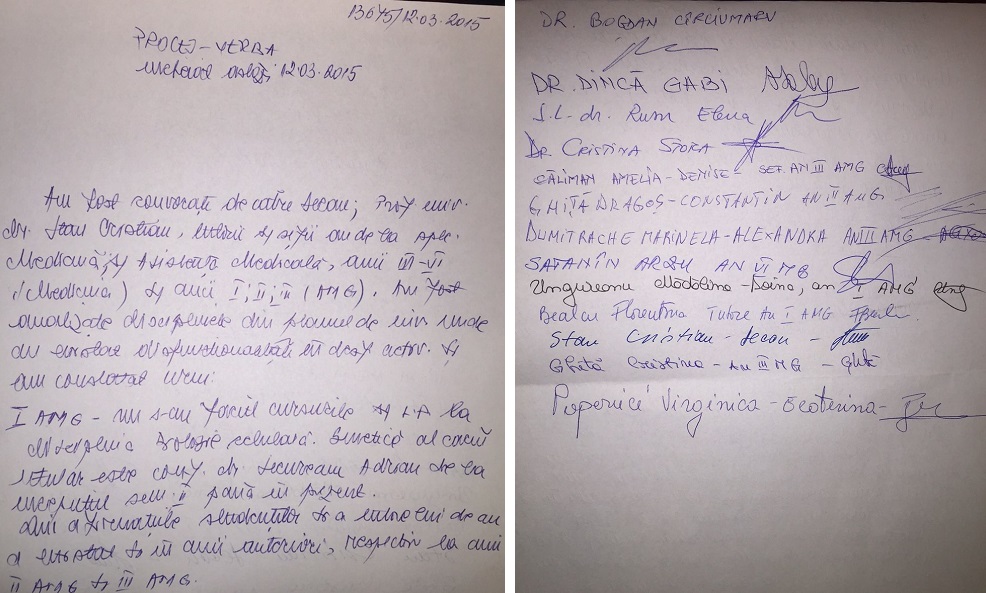 13675/12.03.2015
PROCES-VERBA
încheiat astăzi, 12.03.2015
Am fost convocați de către Decan, Prof univ.
dr. Stan Cristian, tutorii și șefii an de la spec.
Medicină, și Asistență Medicală, anii III-VI
(Medicina) și anii I, II, III (AMG). Au fost
analizate disciplinele din planul de inv. unde
au existat disfuncționalități în desf. activ. și
am constatat urm:
I AMG - nu s-au făcut cursurile și L.P. la
disciplina Biologie celulară. Genetică al cărui
titular este conf. dr. Securean Adrian de la
începutul sem. II până în prezent.
Din afirmațiile studenților și a tutorelui de an
a existat și în anii anteriori, respectiv la anii
II AMG și III AMG.
DR. BOGDAN CÎRCIUMARU
DR. DINCĂ GABI
Ș.L. dr. Rusu Elena
Dr. CRISTINA STOIA
CĂLIMAN AMELIA-DENISE - SEF. AN III AMG
GHIȚĂ DRAGOȘ-CONSTANTIN AN II AMG
DUMITRACHE MARINELA-ALEXANDRA AN III AMG
AN VI MG
Ungureanu Mădălina-Doina, an I AMG
Florentina Tutore An I AMG
Stan Cristian - Decan -
Ghită Cristina - AN III MG -
Virginica - Ecaterina -